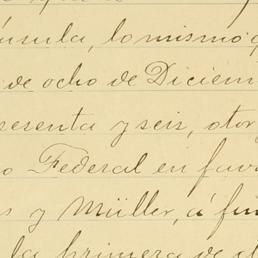 ínsula, lo mismo q
de ocho de Diciem
esenta y seis, otor
o Federal en fav
s y Müller, á fin
la primera de